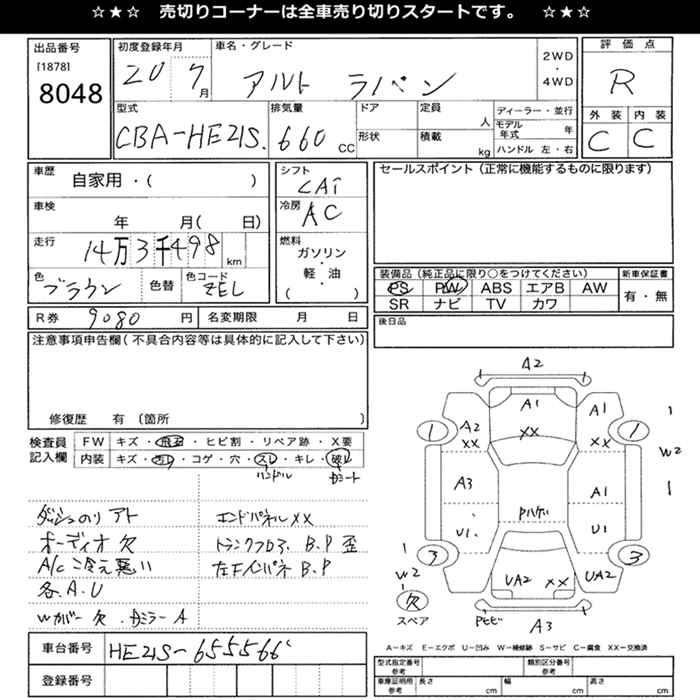 ☆★☆ 売切りコーナーは全車売り切りスタートです。 ☆★☆
出品番号 [1878] 8048
初度登録年月 20 7月
車名・グレード アルト ラパン
2WD・4WD
評価点 R
外装 C 内装 C
型式 CBA-HE21S
排気量 660 CC
ドア
形状
定員 人
積載 kg
ディーラー・並行
モデル年式 年
ハンドル 左・右
車歴 自家用・( )
車検 年 月( 日)
走行 14万3千498 km
色 ブラウン 色替 色コード ZEL
シフト CAT
冷房 AC
燃料 ガソリン・軽・油 ( )
セールスポイント(正常に機能するものに限ります)
装備品(純正品に限り○をつけてください)
PS PW ABS エアB AW
SR ナビ TV カワ
新車保証書 有・無
R券 9080 円 名変期限 月 日
後日品
注意事項申告欄(不具合内容等は具体的に記入して下さい)
修復歴 有 (箇所 )
検査員記入欄
FW キズ・飛石・ヒビ割・リペア跡・X要
内装 キズ・汚レ・コゲ・穴・スレ・キレ・破レ
ハンドル シート
ダッシュのり アト
オーディオ 欠
A/C 冷え悪い
各 A.U
Wカバー 欠
エンドパネル XX
トランクフロア B.P 歪
左Fインパネ B.P
車台番号 HE21S-655566
登録番号
A2
A1 XX
A2 XX
A1 XX
1
1
W2
A3
A1
U1
U1
3
3
W2
UA2 XX
UA2
欠
スペア
A3
A－キズ E－エクボ U－凹み W－補修跡 S－サビ C－腐食 XX－交換済
型式指定番号 参考
類別区分番号 参考
車庫証明用 参考 長さ cm 幅 cm 高さ cm